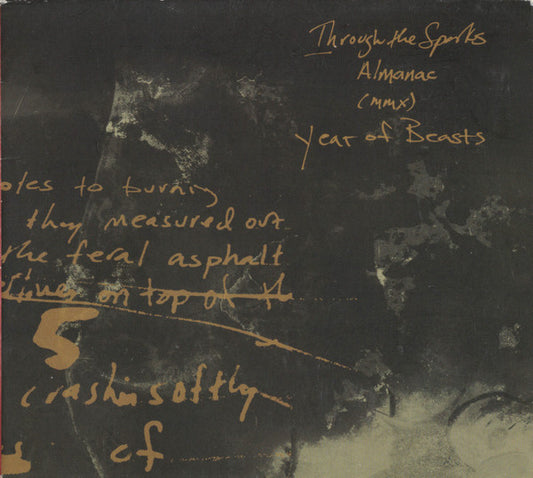 Through the Sparks
Almanac
(mmx)
Year of Beasts
to burning
they measured out
the feral asphalt
on top of th
5
crashin softly
of